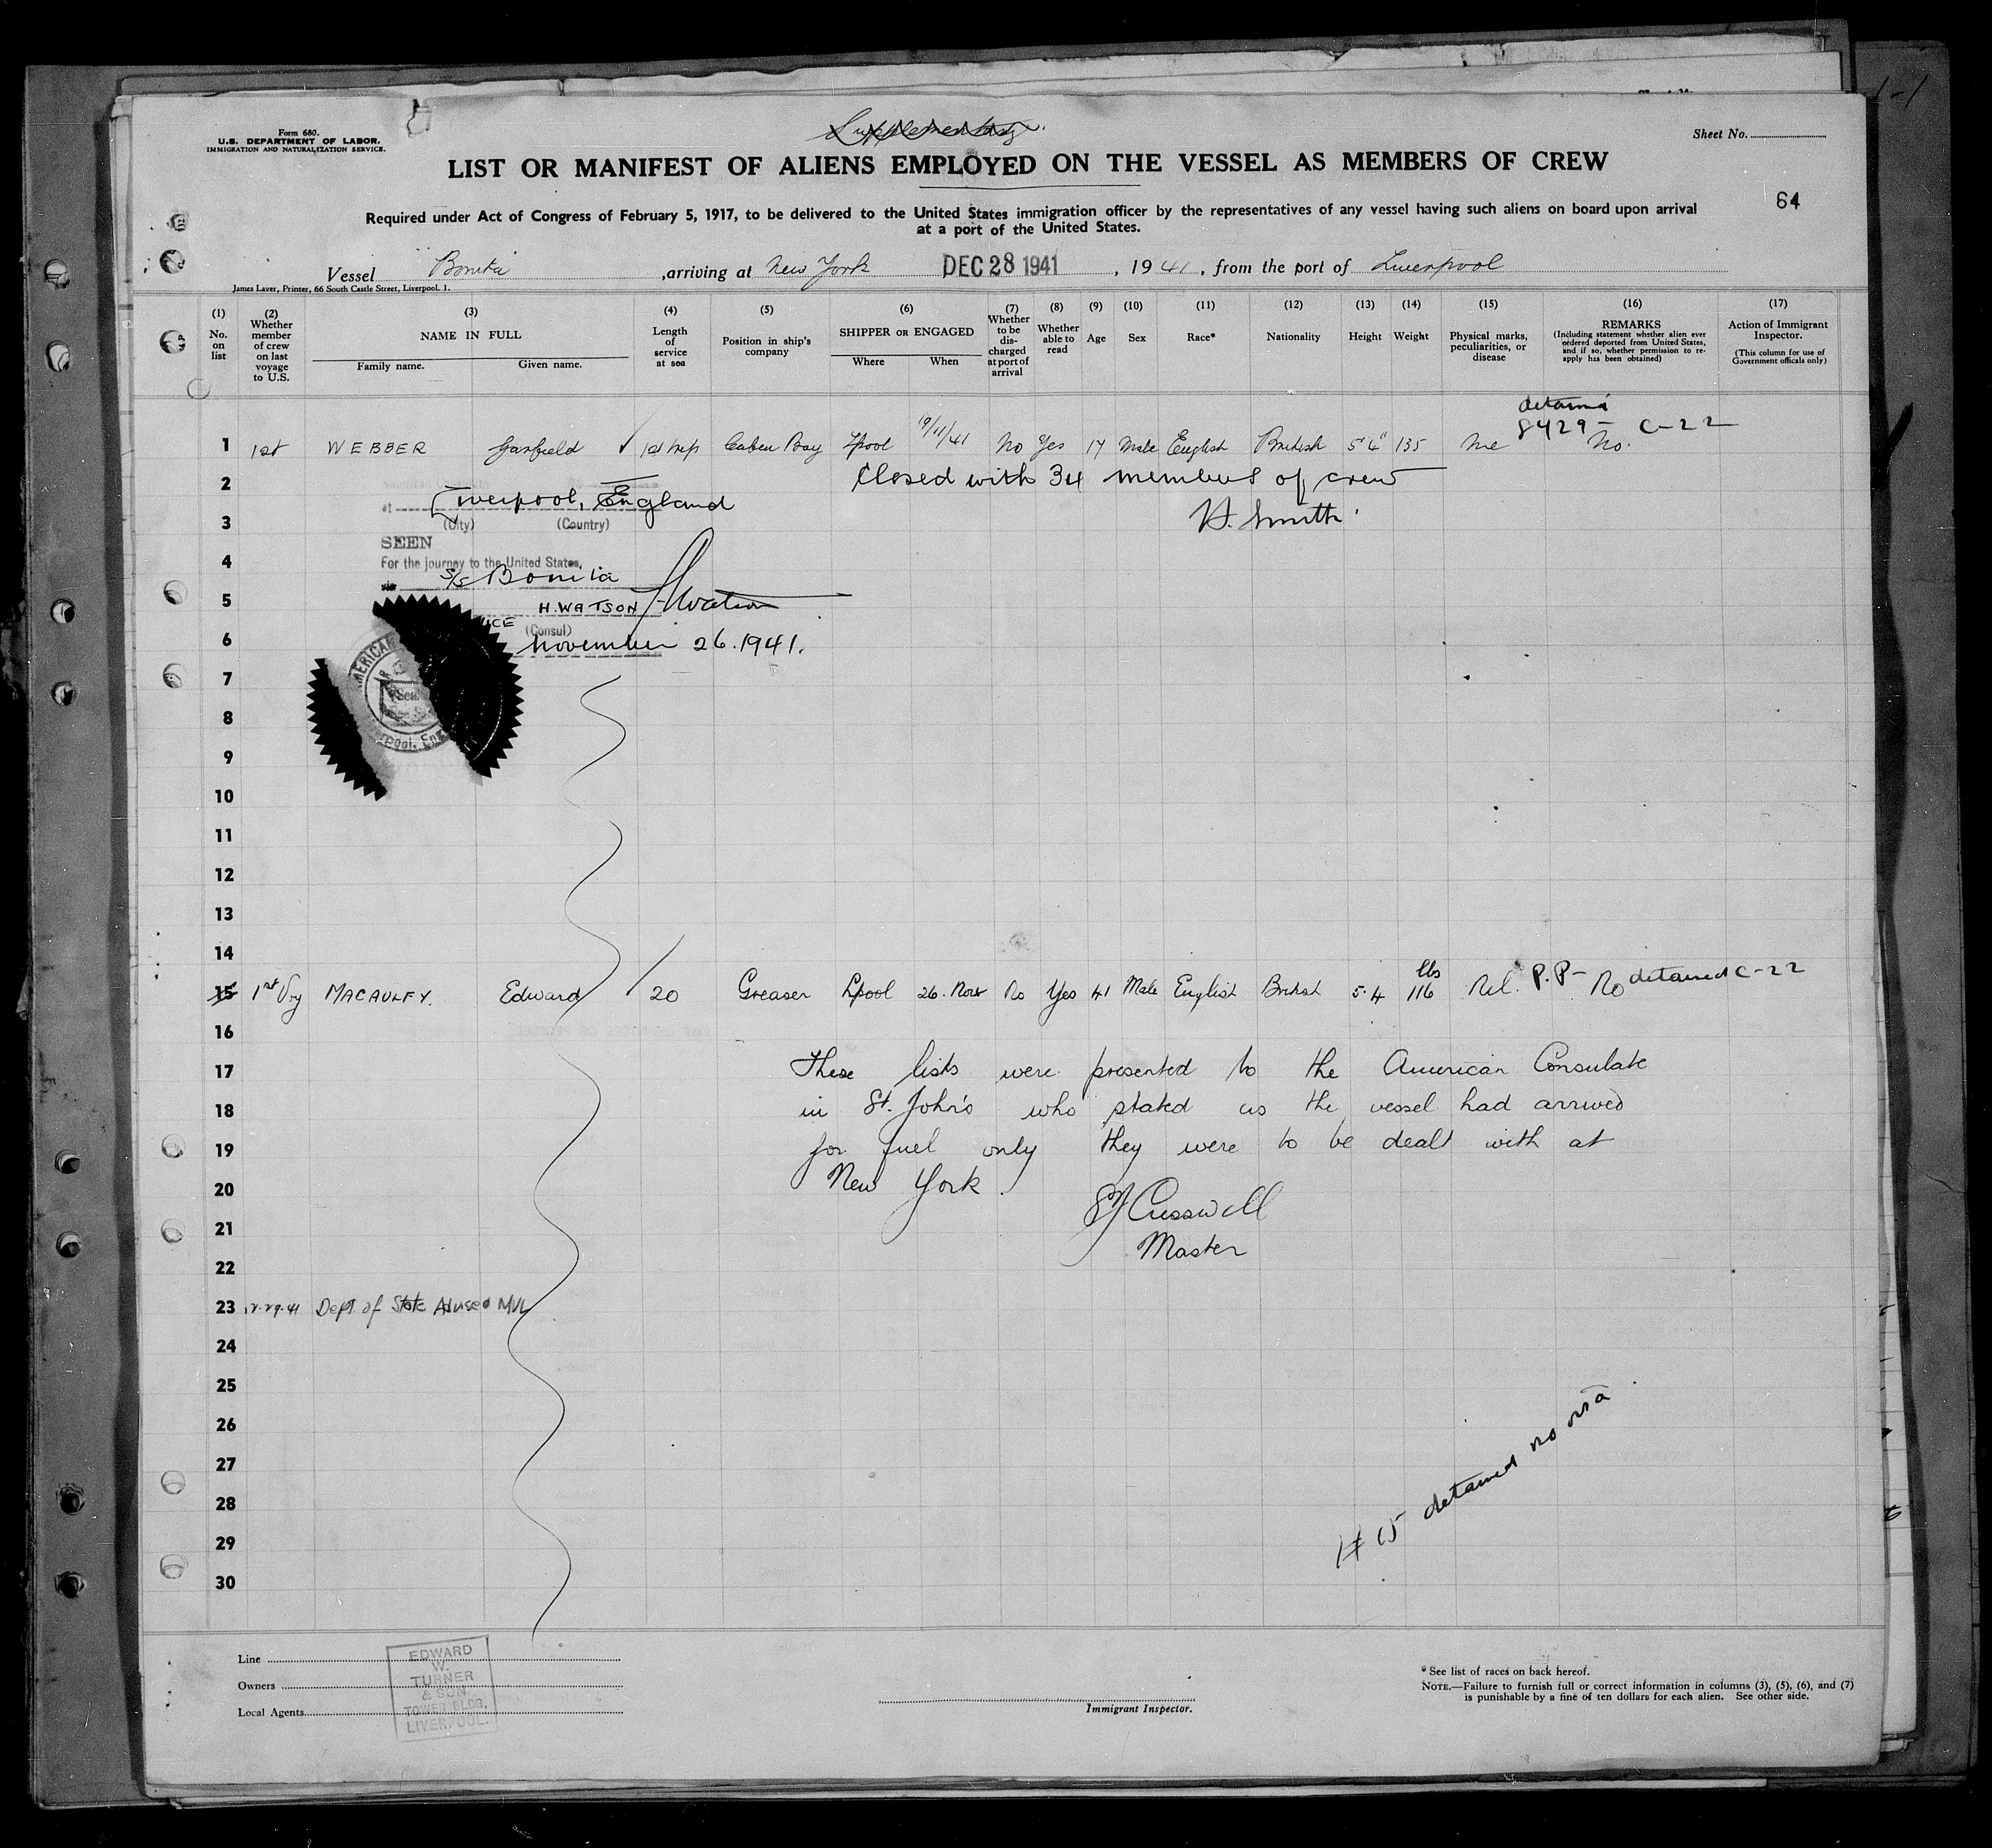 Form 680.
U.S. DEPARTMENT OF LABOR.
IMMIGRATION AND NATURALIZATION SERVICE.
Supplementary
Sheet No.
LIST OR MANIFEST OF ALIENS EMPLOYED ON THE VESSEL AS MEMBERS OF CREW
64
Required under Act of Congress of February 5, 1917, to be delivered to the United States immigration officer by the representatives of any vessel having such aliens on board upon arrival
at a port of the United States.
Vessel Bonita, arriving at New York DEC 28 1941, 1941, from the port of Liverpool
James Laver, Printer, 66 South Castle Street, Liverpool. 1.
(1) No. on list
(2) Whether member of crew on last voyage to U.S.
(3) NAME IN FULL Family name. Given name.
(4) Length of service at sea
(5) Position in ship's company
(6) SHIPPER OR ENGAGED Where When
(7) Whether to be discharged at port of arrival
(8) Whether able to read
(9) Age
(10) Sex
(11) Race*
(12) Nationality
(13) Height
(14) Weight
(15) Physical marks, peculiarities, or disease
(16) REMARKS (Including statement whether alien ever ordered deported from United States, and if so, whether permission to re-apply has been obtained)
(17) Action of Immigrant Inspector. (This column for use of Government officials only)
detained
8429- C-22
1 1st WEBBER Garfield 1st trip Cabin Boy Lpool 19/11/41 No Yes 17 Male English British 5'4" 135 No.
2 Closed with 34 members of crew
at Liverpool, England
(City) (Country)
3 H. Smith
SEEN
4 For the journey to the United States,
S/S Bonita
5 H. WATSON HWatson
VICE (Consul)
6 November 26. 1941.
AMERICAN
Seal
7
8
9
10
11
12
13
14
15 1st Vy MACAULEY. Edward 20 Greaser Lpool 26. Nov No Yes 41 Male English British 5.4 116 lbs Nil. P.P- No detained C-22
16
17 These lists were presented to the American Consulate
18 in St. John's who stated as the vessel had arrived
19 for fuel only they were to be dealt with at
20 New York.
Cresswell
21 Master
22
23 12.29.41 Dept. of State Advised MVL
24
25
26
27
28
29
30
# 15 detained no visa
Line
Owners
Local Agents
EDWARD
W.
TURNER
& SON
TOWER BLDG,
LIVERPOOL.
Immigrant Inspector.
*See list of races on back hereof.
NOTE.—Failure to furnish full or correct information in columns (3), (5), (6), and (7)
is punishable by a fine of ten dollars for each alien. See other side.